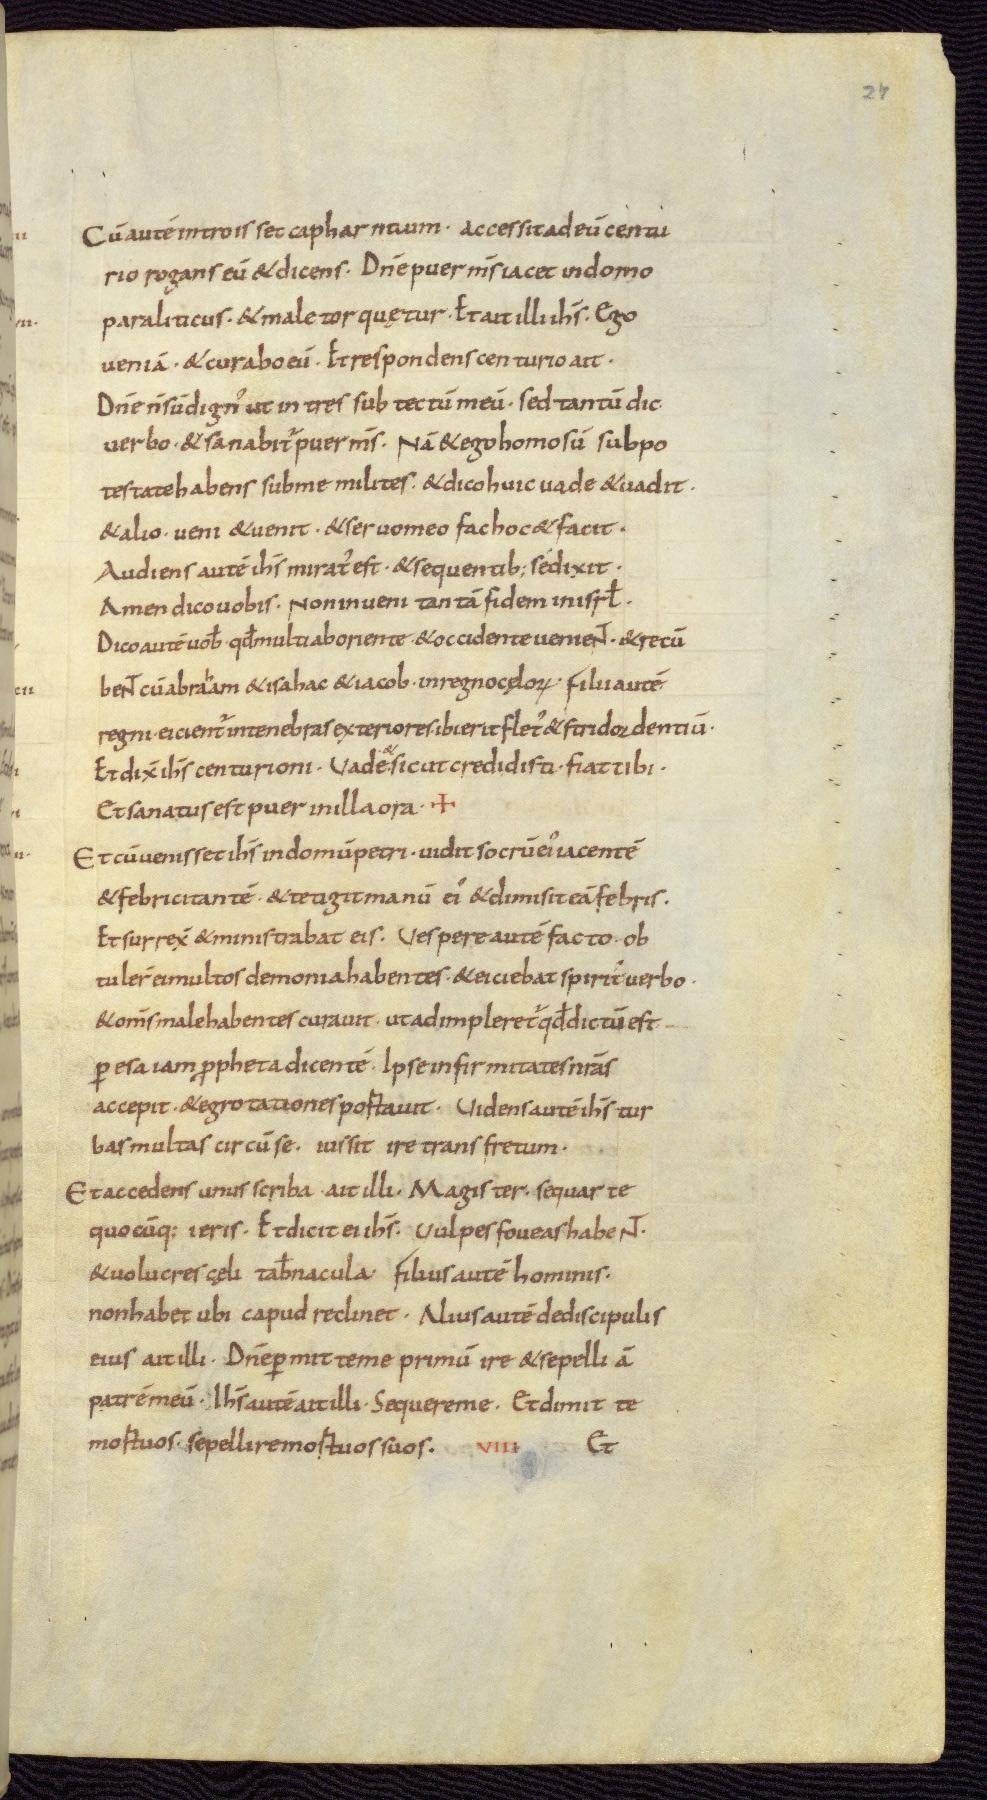 27
Cū autē introisset capharnaum · accessit ad eū centu
rio rogans eū & dicens · Dn̄e puer m̄s iacet in domo
paraliticus · & male torquętur · Et ait illi ih̄s · Ego
veniā · & curabo eū · Et respondens centurio ait ·
Dn̄e n̄ sū dign᾽ ut intres sub tectū meū · sed tantū dic
verbo · & sanabit᾽ puer m̄s · Nā & ego homo sū sub po
testate habens sub me milites · & dico huic uade & uadit ·
& alio · veni & venit · & servo meo fac hoc & facit ·
Audiens autē ih̄s mirat᾽ est · & sequentib; se dixit ·
Amen dico vobis · Non inveni tantā fidem in isrl̄ ·
Dico autē vob̄ · qd̄ multi ab oriente & occidente venieN̄ · & recū
beN̄ cū abraham & isahac & iacob · in regno cęloꝝ · filii autē
regni · eicient᾽ in tenebras exteriores ibi erit flet᾽ & stridor dentiū ·
Et dix̄ ih̄s centurioni · Vade & sicut credidisti · fiat tibi ·
Et sanatus est puer in illa ora · +
Et cū venisset ih̄s in domū petri · vidit socrū ei᾽ iacentē
& febricitantē · & tetigit manū ei᾽ & dimisit eā febris ·
Et surrex̄ & ministrabat eis · Vespere autē facto · ob
tuler̄ ei multos demonia habentes · & eiciebat spirit᾽ verbo ·
& om̄s male habentes curavit · ut adimpleret᾽ qd̄ dictū est
ꝑ esaiam ꝓpheta dicentē · Ipse infirmitates nr̄as
accepit · & egrotationes portavit · Videns autē ih̄s tur
bas multas circū se · iussit ire trans fretum ·
Et accedens unus scriba · ait illi · Magister · sequar te
quocūq; ieris · Et dicit ei ih̄s · Vulpes foveas habeN̄ ·
& volucres cęli tab̄nacula · filius autē hominis ·
non habet ubi capud reclinet · Alius autē de discipulis
eius ait illi · Dn̄e ꝑmitte me primū ire & sepelli ā
patrē meū · Ih̄s autē ait illi · Sequere me · Et dimitte
mortuos · sepellire mortuos suos · VIII Et